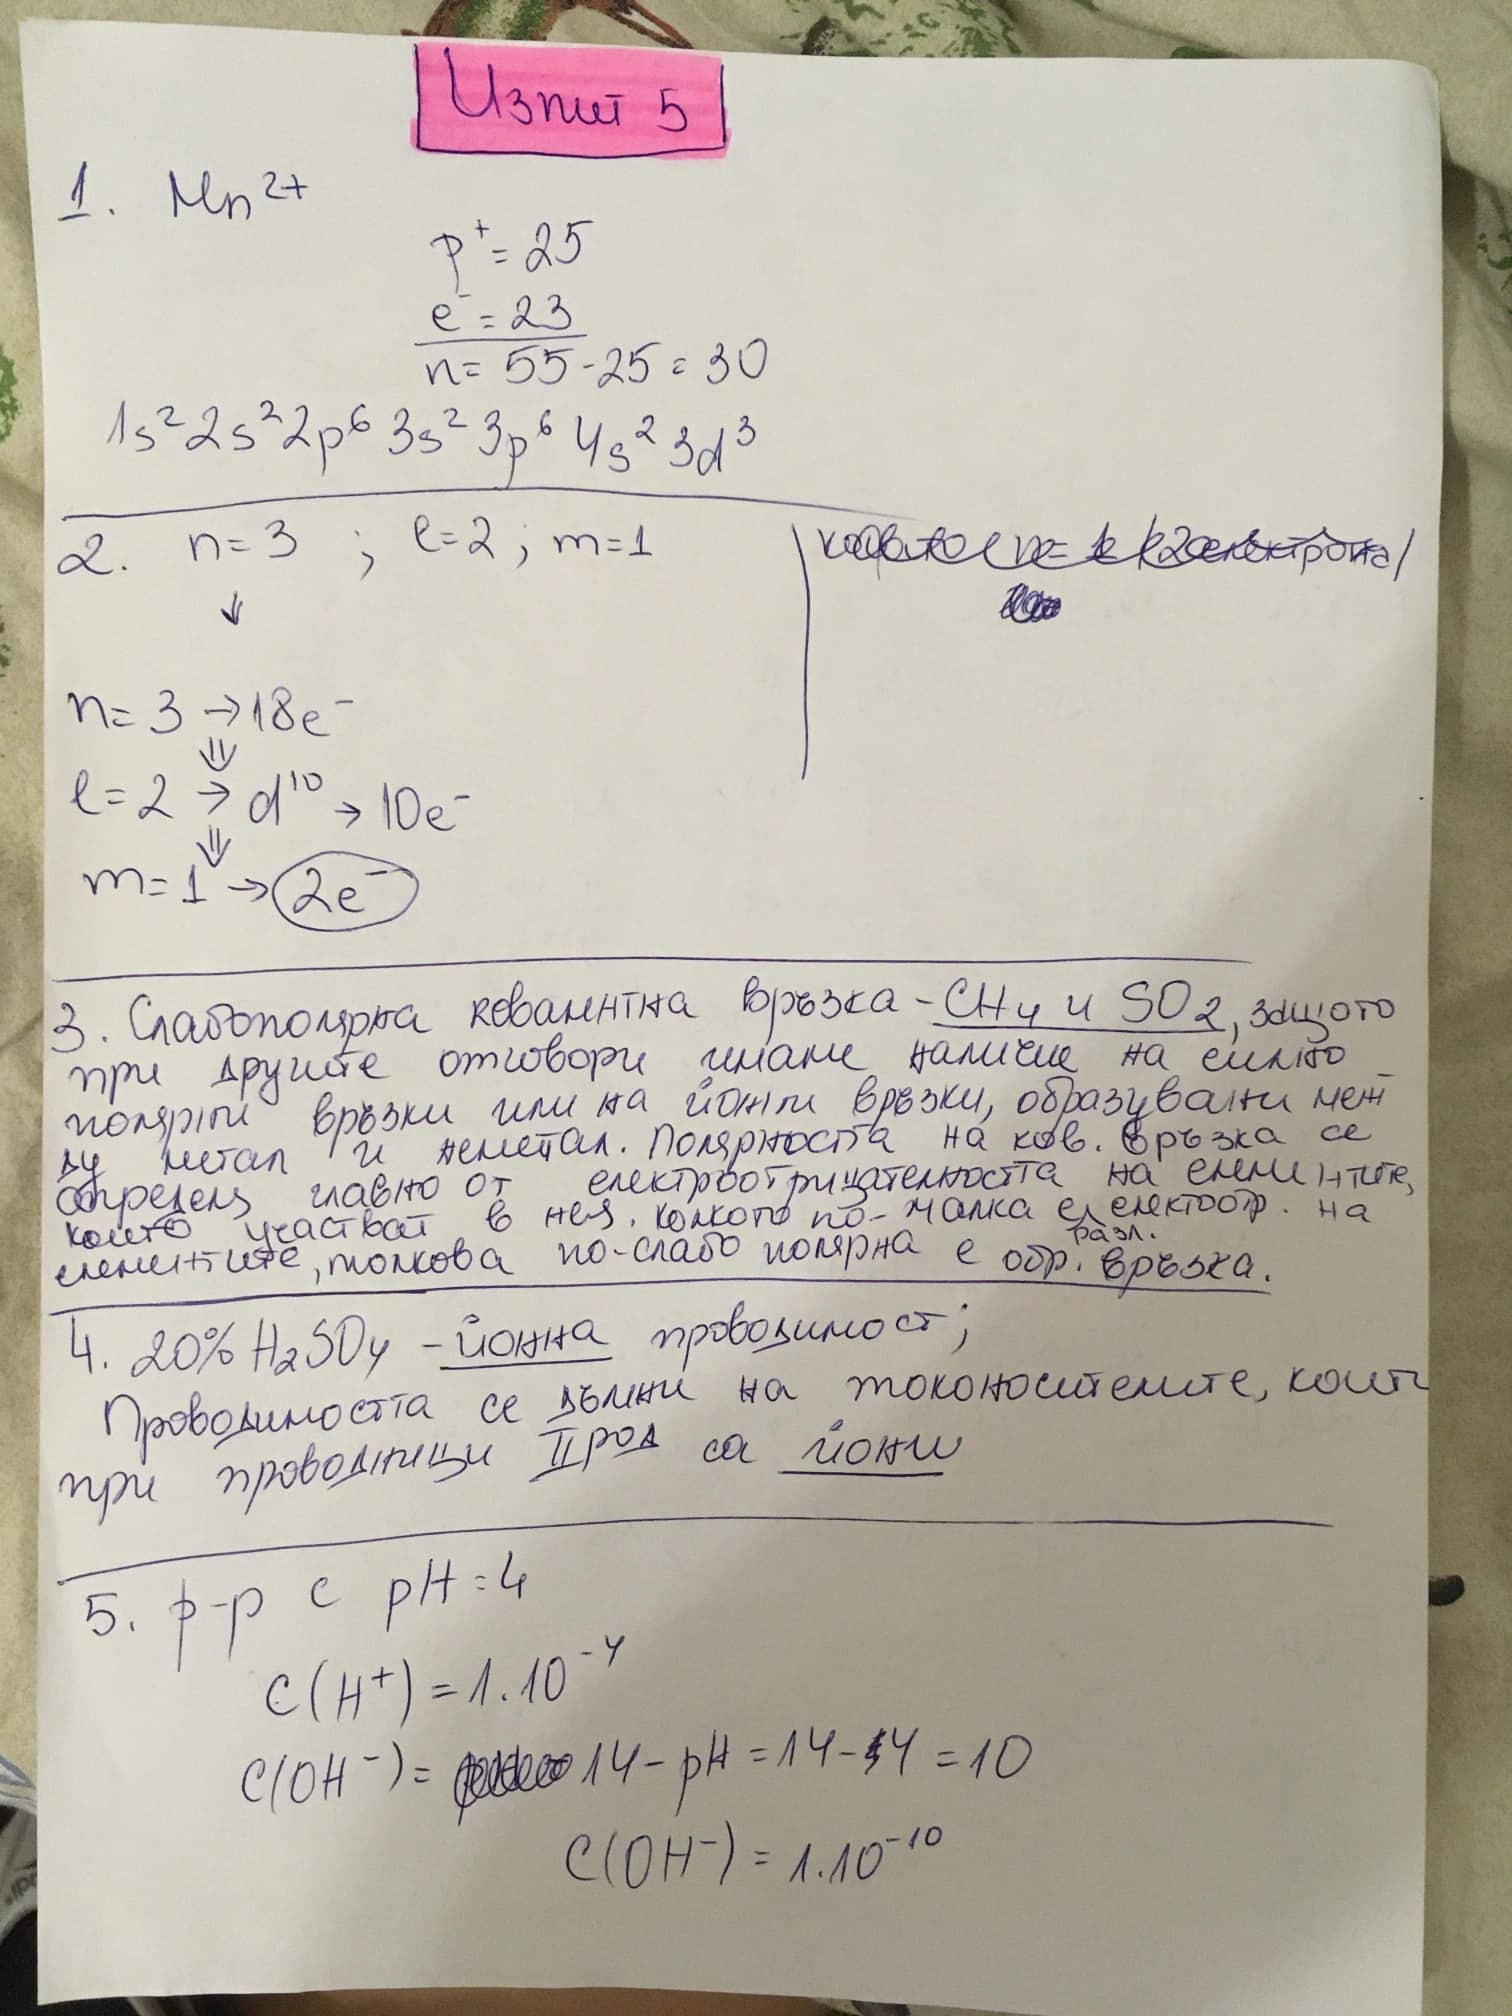 Изпит 5
1. Mn²⁺
p⁺ = 25
e⁻ = 23
n = 55 - 25 = 30
1s² 2s² 2p⁶ 3s² 3p⁶ 4s² 3d³
2. n = 3 ; l = 2 ; m = 1
↓
n = 3 → 18e⁻
⇓
l = 2 → d¹⁰ → 10e⁻
⇓
m = 1 → 2e⁻
3. Слабополярна ковалентна връзка - CH₄ и SO₂, защото
при другите отговори имаме наличие на силно
полярни връзки или на йонни връзки, образувани меж
ду метал и неметал. Полярността на ков. връзка се
определя главно от електроотрицателността на елементите,
които участват в нея. Колкото по-малка е електроотр. на
разл.
елементите, толкова по-слабо полярна е обр. връзка.
4. 20% H₂SO₄ - йонна проводимост;
Проводимостта се дължи на токоносителите, които
при проводници II род са йони
5. р-р с pH = 4
C(H⁺) = 1.10⁻⁴
C(OH⁻) = 14 - pH = 14 - 4 = 10
C(OH⁻) = 1.10⁻¹⁰